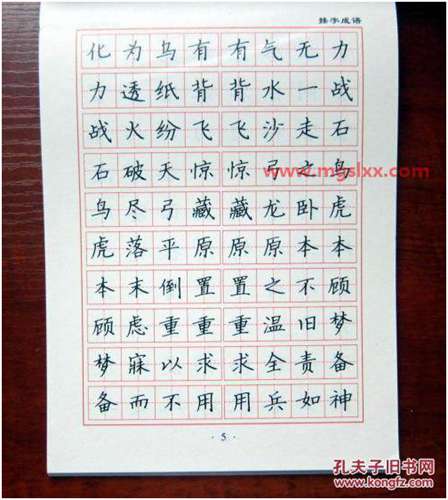 接字成语
化为乌有有气无力
力透纸背背水一战
战火纷飞飞沙走石
石破天惊惊弓之鸟
www.mgslxx.com
鸟尽弓藏藏龙卧虎
虎落平原原原本本
本末倒置置之不顾
顾虑重重重温旧梦
梦寐以求求全责备
备而不用用兵如神
·5·
孔夫子旧书网
www.kongfz.com